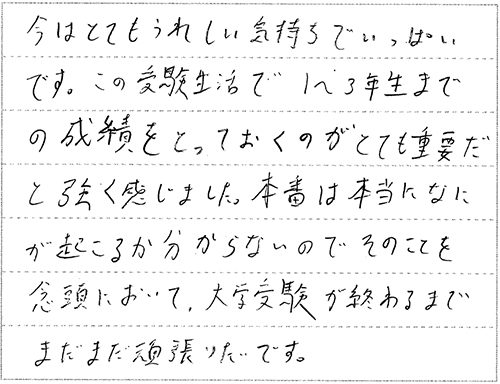 今はとてもうれしい気持ちでいっぱい
です。この受験生活で1〜3年生まで
の成績をとっておくのがとても重要だ
と強く感じました。本番は本当になに
が起こるか分からないのでそのことを
念頭において、大学受験が終わるまで
まだまだ頑張りたいです。